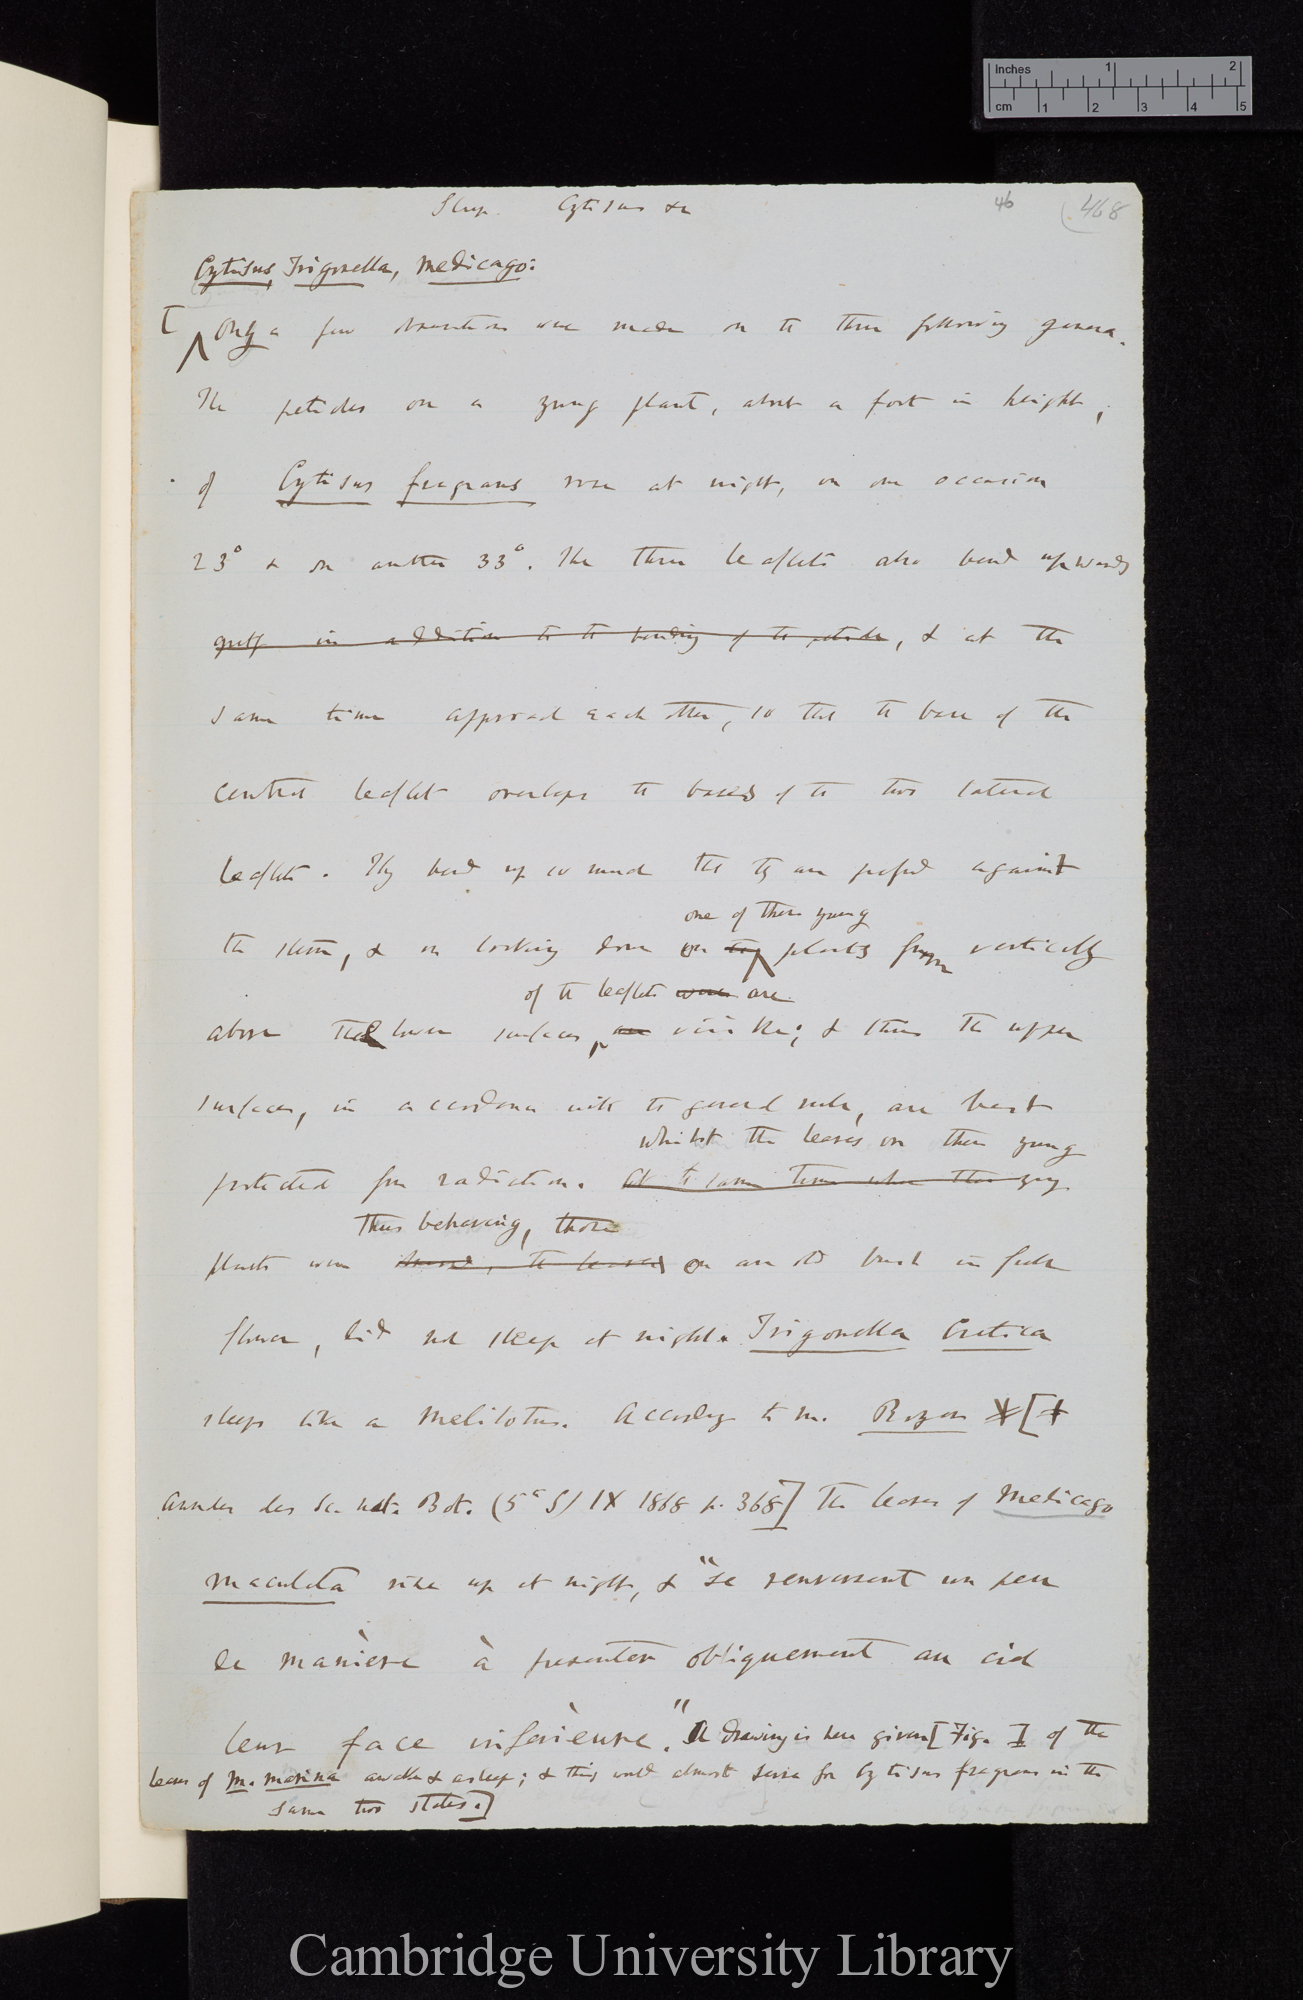 Inches 1 2
cm 1 2 3 4 5
Sleep. Cytisus &c 46 468
Cytisus, Trigonella, Medicago:
[ Only a few observations were made on the three following genera.
The petioles on a young plant, about a foot in height,
of Cytisus fragrans rose at night, on one occasion
23° & on another 33°. The three leaflets also bend upwards
in addition to the bending of the petiole, & at the
same time approach each other, so that the base of the
central leaflet overlaps the bases of the two lateral
leaflets. They bend up so much that they are pressed against
one of these young
the stem, & on looking down on they plants from vertically
of the leaflets were are
above the lower surfaces are visible; & thus the upper
surfaces, in accordance with the general rule, are best
whilst the leaves on these young
protected from radiation. At the same time when these young
Thus behaving, those
plants were the leaves on an old bush in full
flower, did not sleep at night. Trigonella Cretica
sleeps like a Melilotus. According to M. Royer * [*
Annales des Sc. nat. Bot. (5e S) IX 1868 p. 368] the leaves of Medicago
maculata rise up at night, & "se renversent un peu
de manière à presenter obliquement au ciel
leur face inférieure." A drawing is here given [Fig. ] of the
leaves of M. marina awake & asleep; & this would almost serve for Cytisus fragrans in the
same two states.]
Cambridge University Library